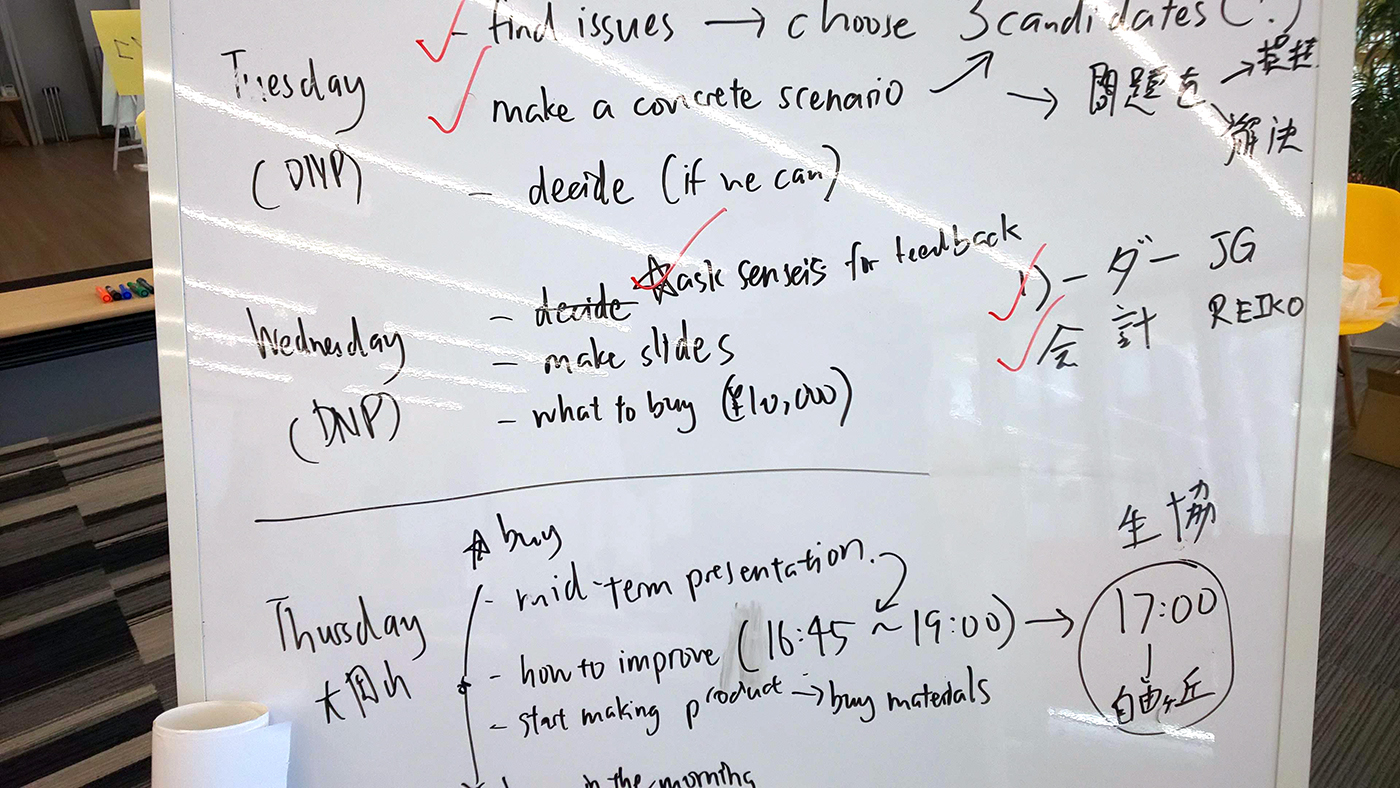 - find issues → choose 3 candidates (?)
Tuesday
- make a concrete scenario → 問題を →
解決
(DNP)
- decide (if we can)
- decide ☆ask senseis for feedback
リーダー JG
会計 REIKO
Wednesday
- make slides
(DNP)
- what to buy (¥10,000)
☆ buy
生協
Thursday
- mid-term presentation.
大岡山
- how to improve (16:45 ~ 19:00) → 17:00
↓
自由ヶ丘
- start making product → buy materials
in the morning